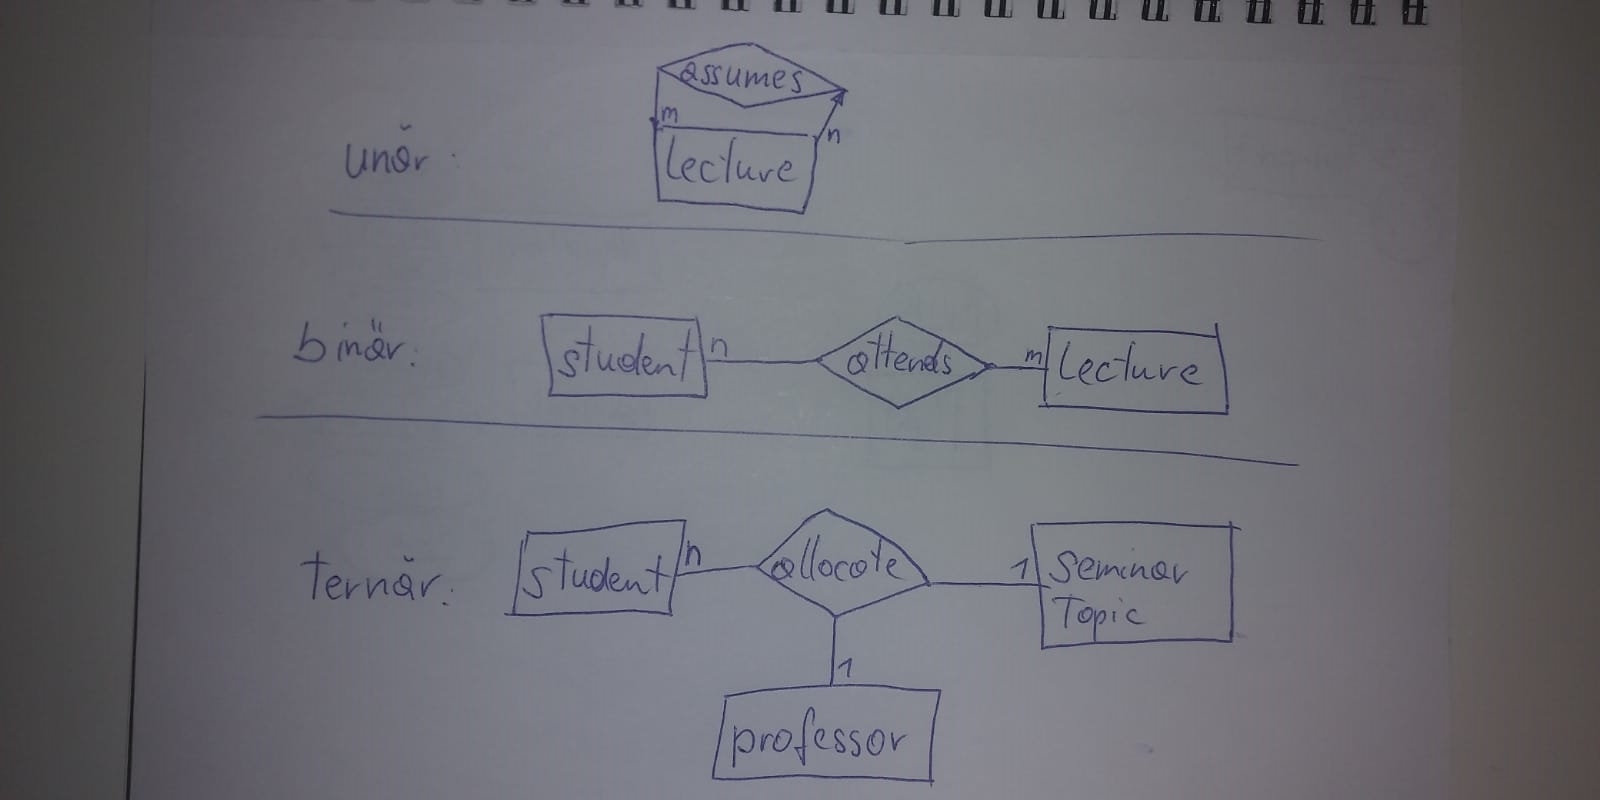 assumes
m
n
unär:
Lecture
binär:
student
n
attends
m
Lecture
ternär:
student
n
allocate
1
Seminar
Topic
1
professor